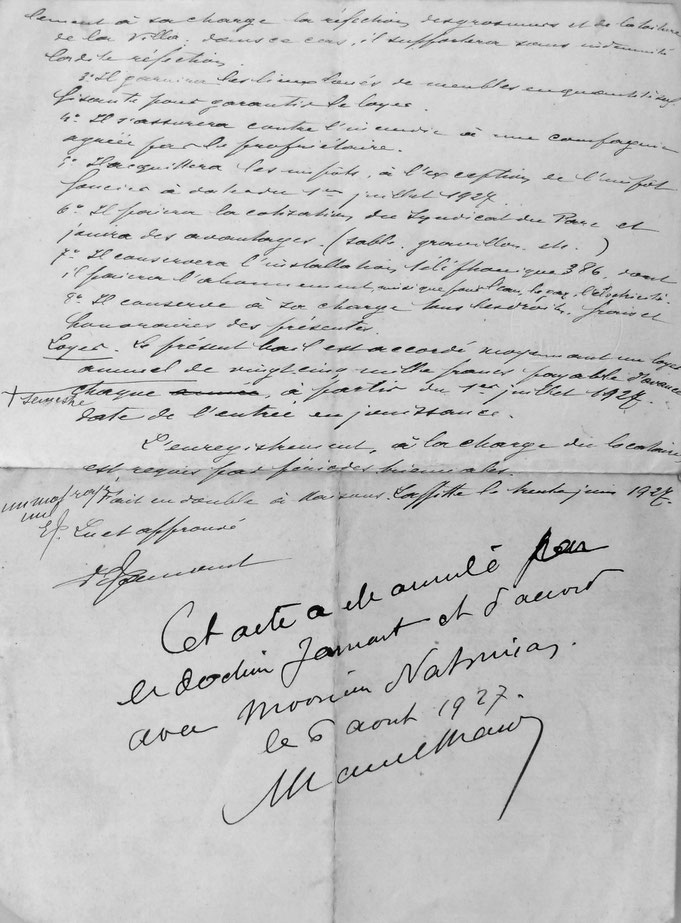 lement à sa charge la réfection des gros murs et de la toiture
de la Villa. dans ce cas, il supportera sans indemnité
ladite réfection.
3º Il garnira les lieux loués de meubles en quantité suf-
fisante pour garantir le loyer.
4º Il s'assurera contre l'incendie à une compagnie
agréée par le propriétaire.
5º Il acquittera les impôts, à l'exception de l'impôt
foncier à dater du 1er juillet 1927.
6º Il paiera la cotisation du Syndicat du Parc et
jouira des avantages. (sable, gravillon, etc.)
7º Il conservera l'installation téléphonique 386, dont
il paiera l'abonnement, ainsi que pour l'eau, le gaz, l'électricité.
8º Il conserve à sa charge tous les droits, frais et
honoraires des présentes.
Loyer. Le présent bail est accordé moyennant un loyer
annuel de vingt cinq mille francs payable d'avance
chaque année, à partir du 1er juillet 1927.
+ semestre
date de l'entrée en jouissance.
L'enregistrement, à la charge du locataire
est requis par périodes triennales.
un mot rayé
nul
Fait en double à Maisons-Laffitte le trente juin 1927.
Lu et approuvé
Cet acte a été annulé par
le docteur Jamart et d'accord
avec Monsieur
le 6 aout 1927.